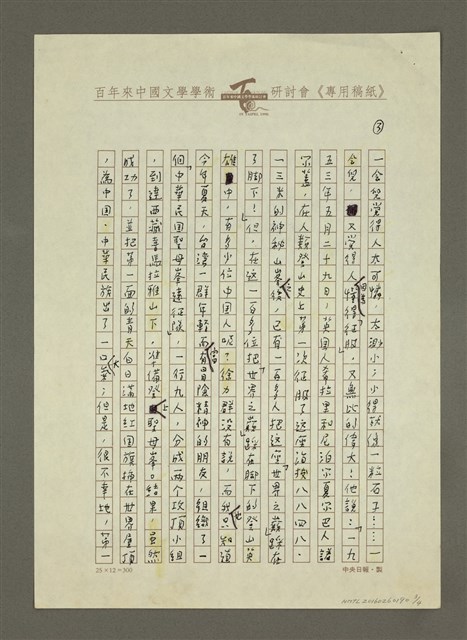 百年來中國文學學術研討會《專用稿紙》
③
一會兒覺得人太可憐，太渺小；小得就像一粒石子！……一
會兒，又覺得人懂得征服，又無比的偉大！他說：「一九
五三年五月二十九日，英国人希拉里和尼泊尔夏尔巴人諾
尔蓋，在人類登山史上第一次征服了这座海拔八八四八·
一三米的神秘山峯後，已有一百多人把这座世界之巔踩在
了腳下！」但，在这一百多位把「世界之巔」踩在腳下的登山英
雄中，有多少位中國人呢？徐力群沒有說，而我只知道
今年夏天，台灣一群年輕而富有冒險精神的朋友，組織了一
個「中華民国聖母峯遠征隊」，一行九人，分成兩个攻頂小組
，到達西藏喜馬拉雅山下，準備登上聖母峯。結果，虽然
成功了，並把第一面的青天白日滿地紅国旗插在世界屋頂
，為中国·中華民族出了一口大氣；但是，很不幸地，第一
25×12＝300
中央日報·製